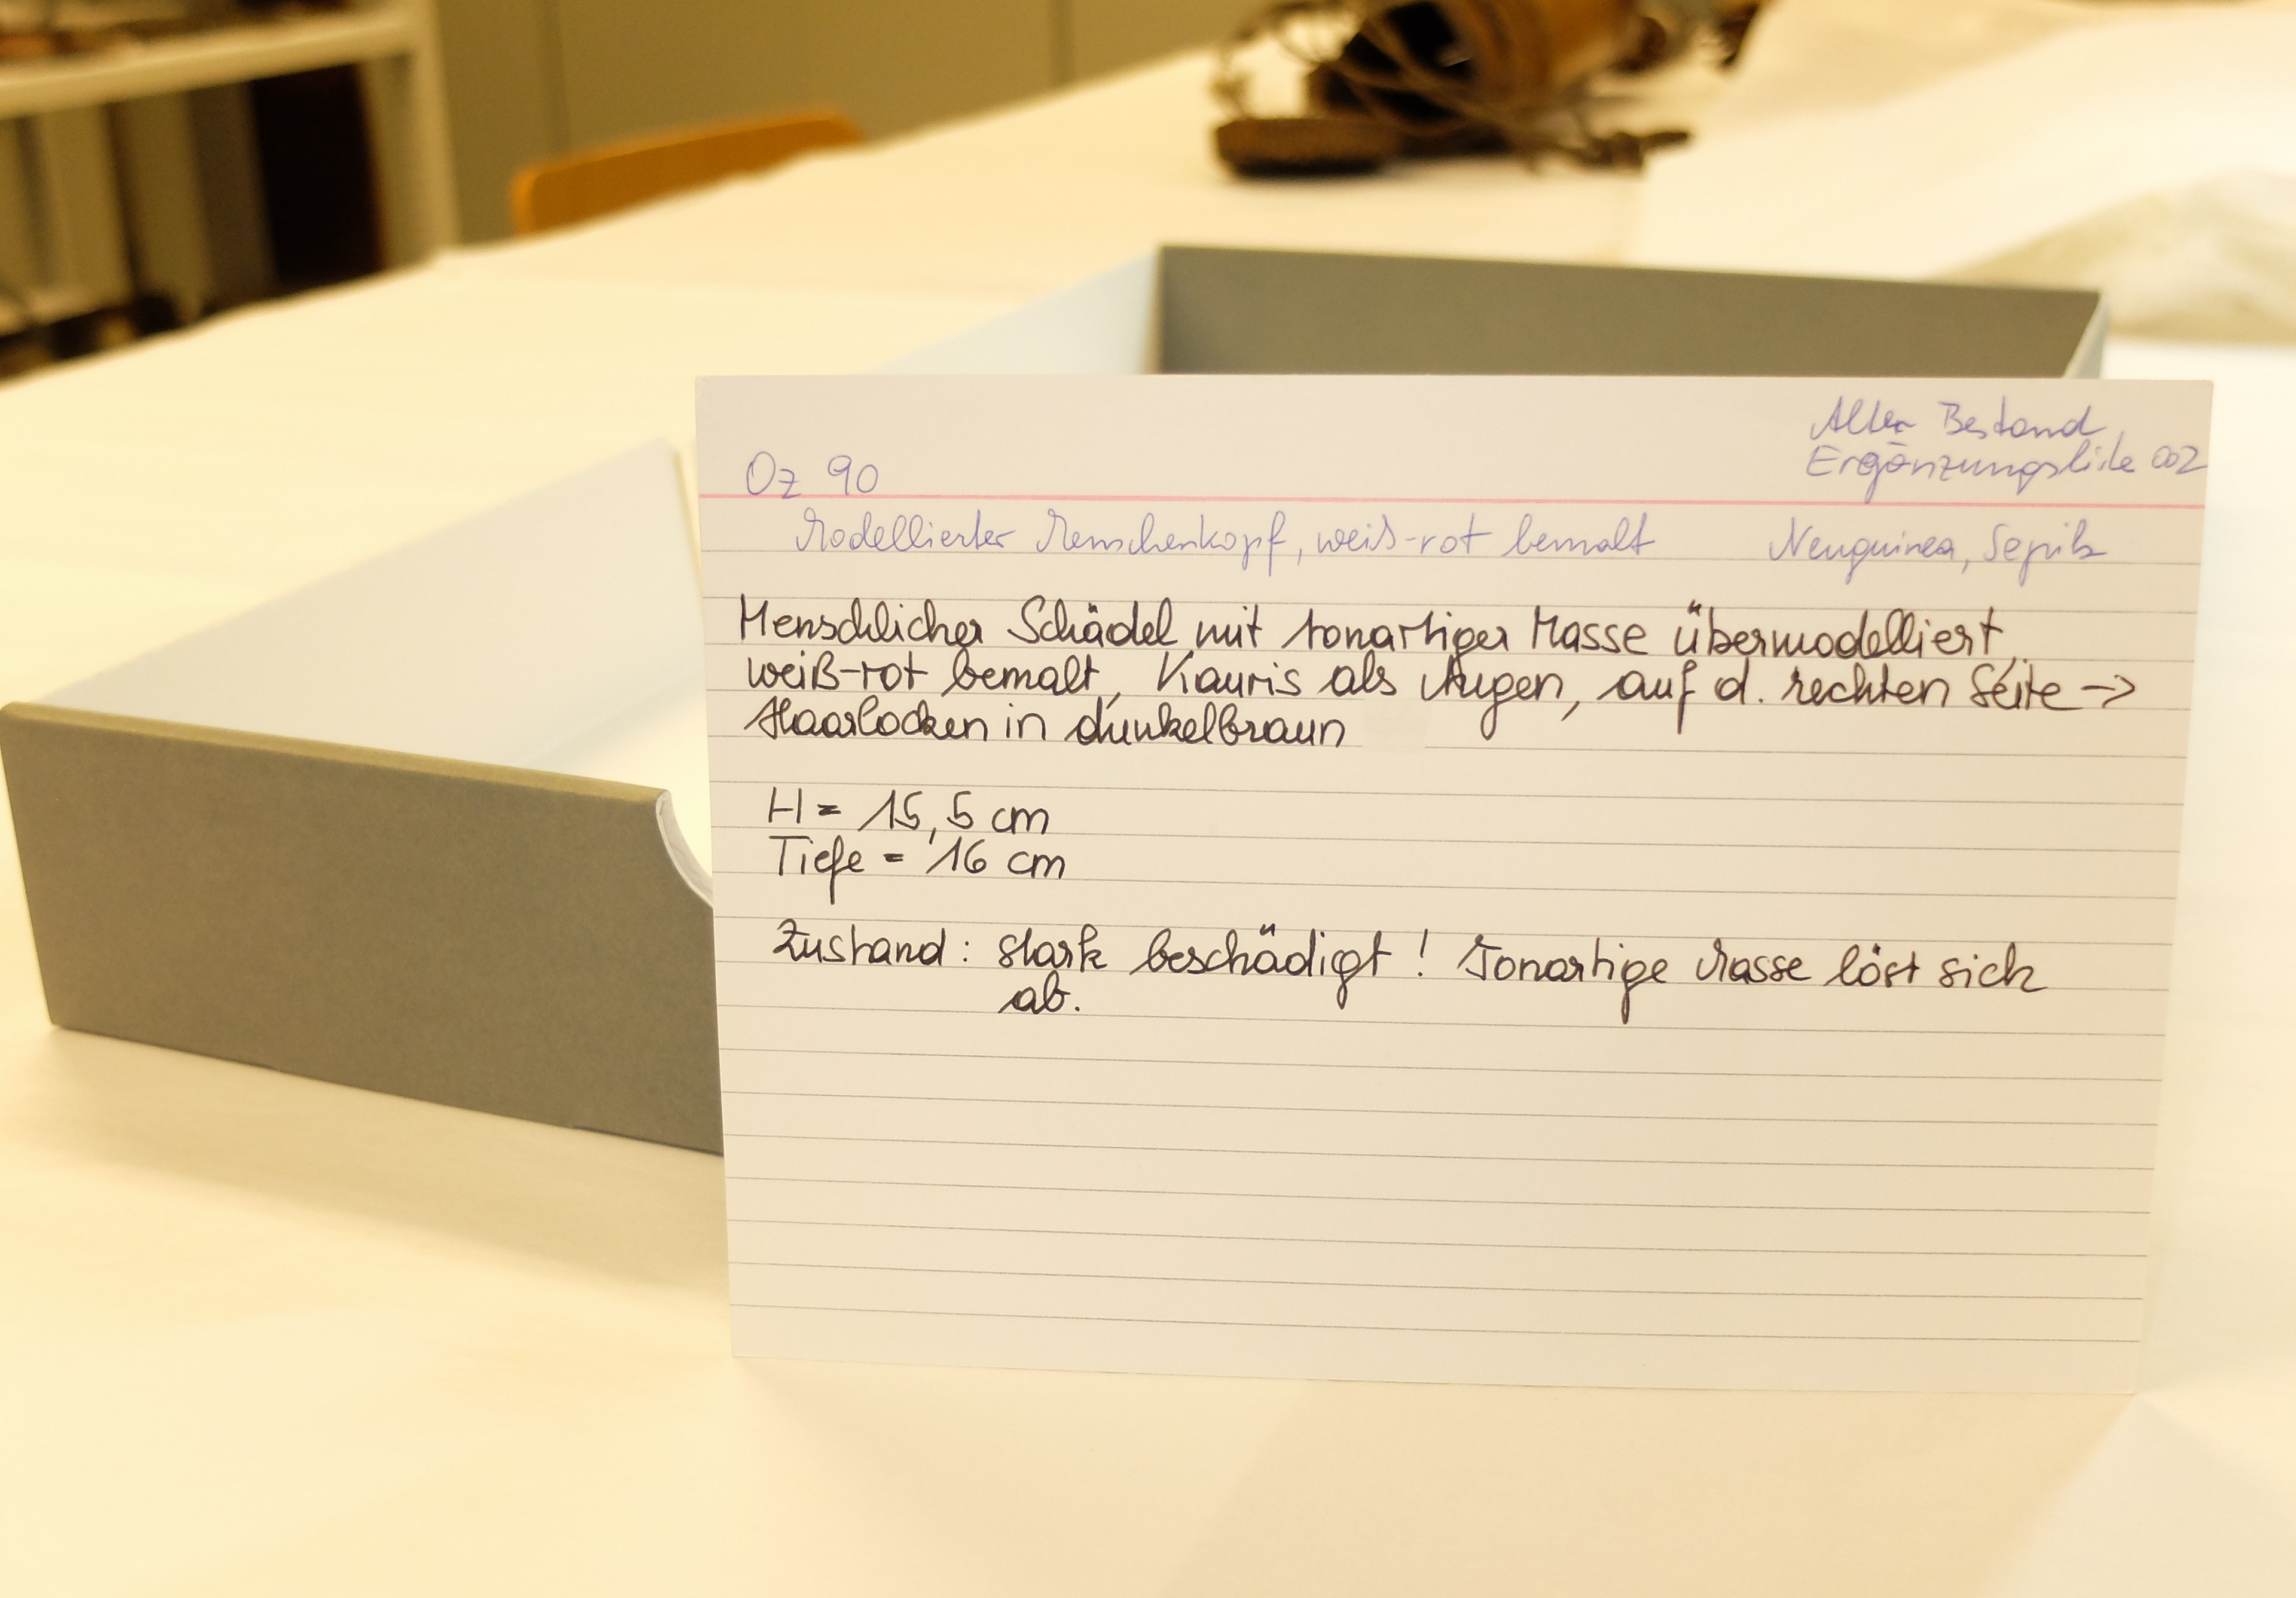 Alter Bestand
Ergänzungsliste 002
Oz 90
Modellierter Menschenkopf, weiß-rot bemalt Neuguinea, Sepik
Menschlicher Schädel mit tonartiger Masse übermodelliert,
weiß-rot bemalt, Kauris als Augen, auf d. rechten Seite ->
Haarlocken in dunkelbraun
H = 15,5 cm
Tiefe = 16 cm
Zustand: stark beschädigt! Tonartige Masse löst sich
ab.